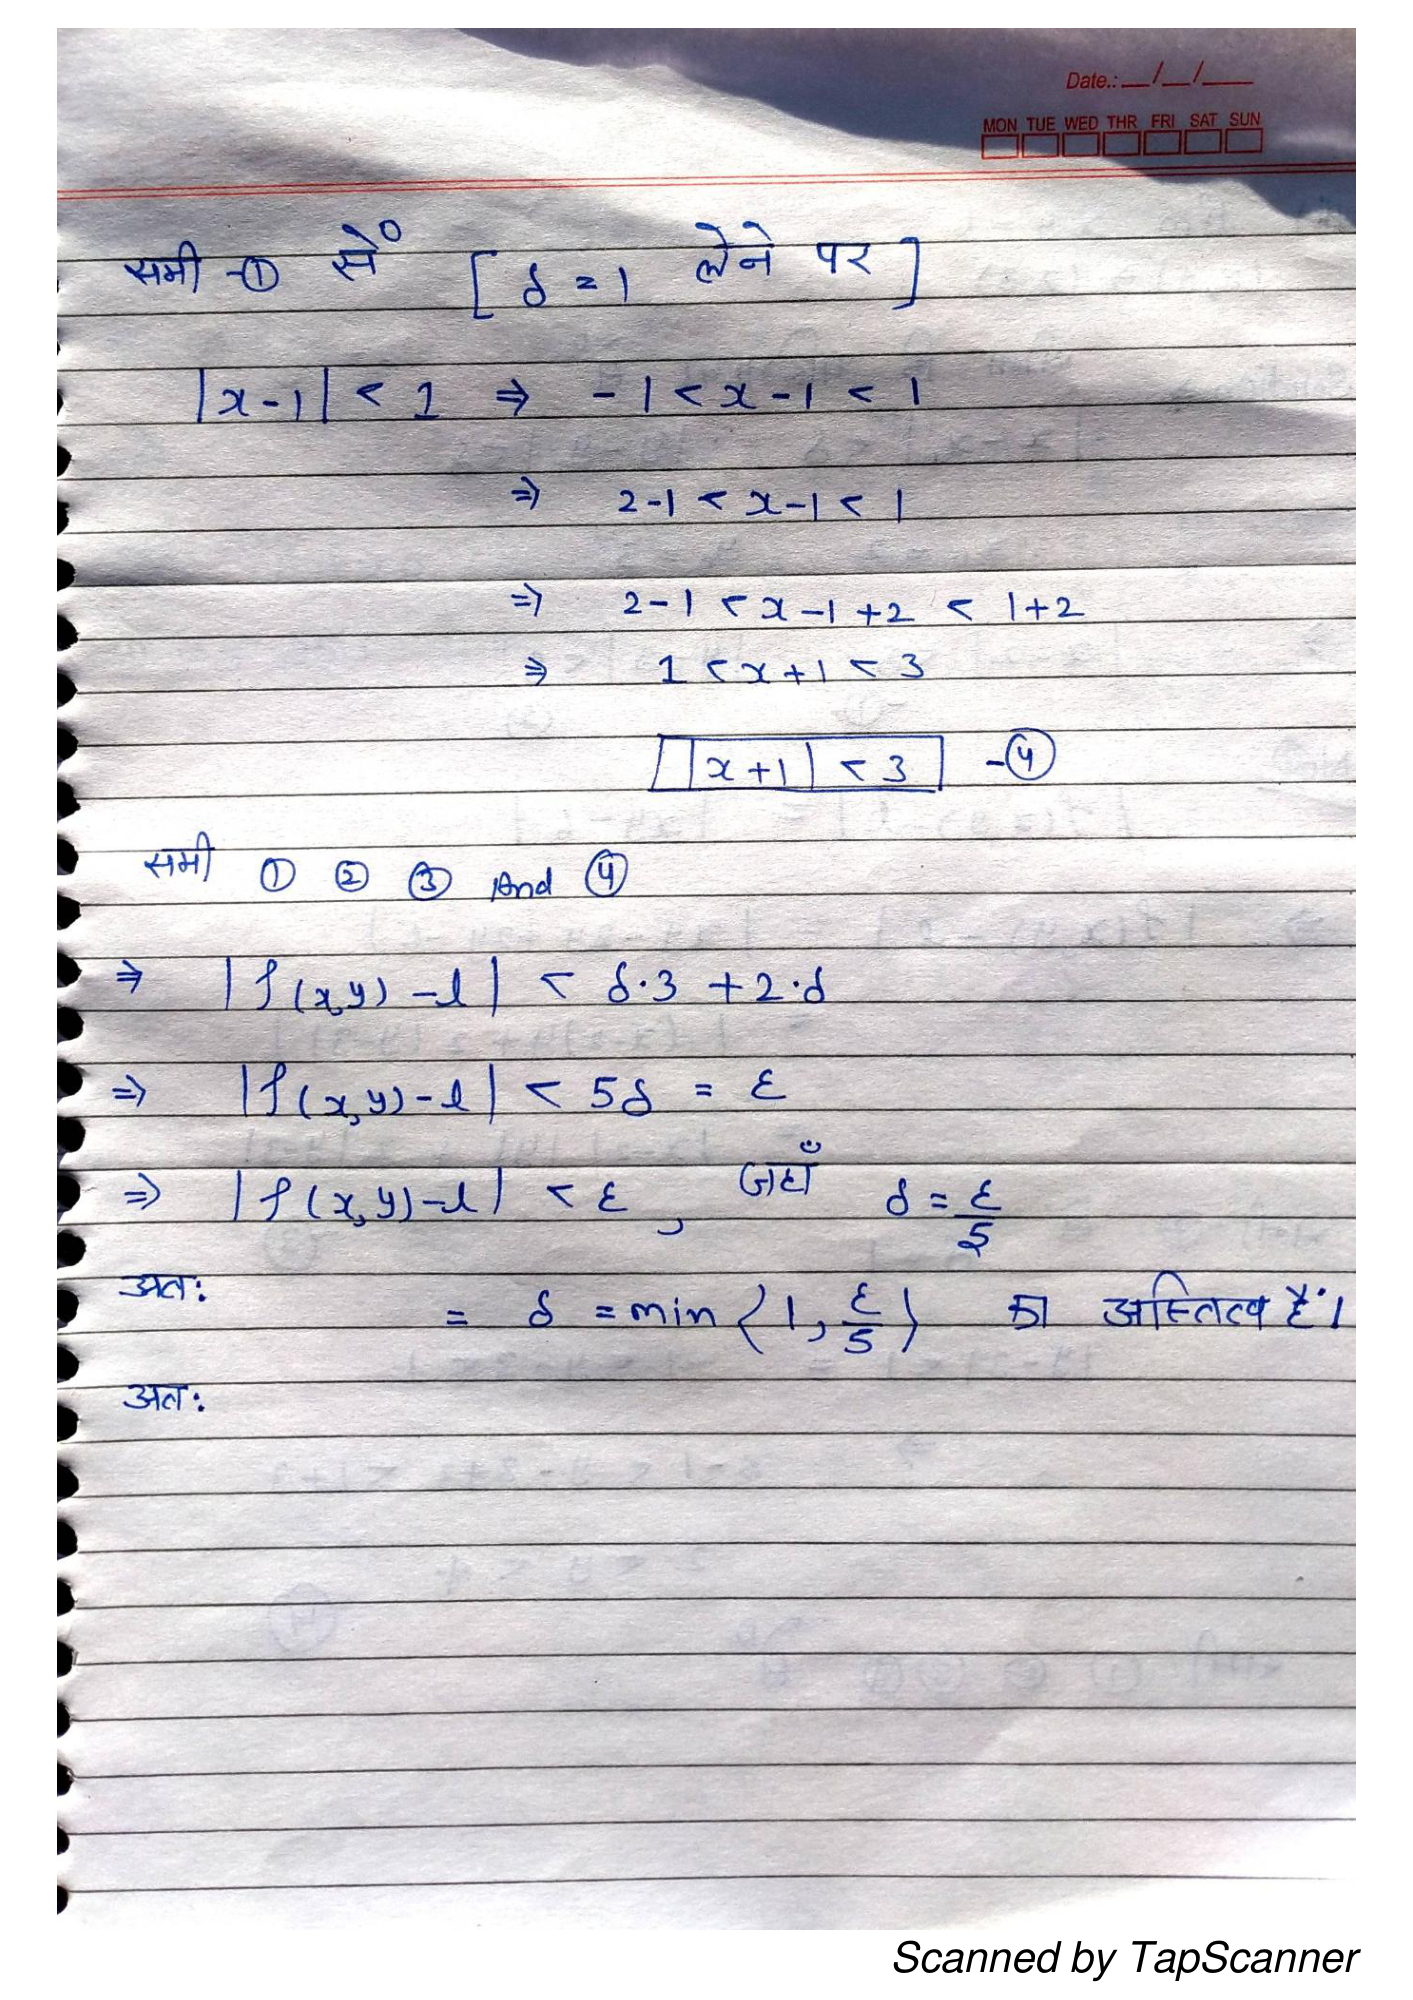 Date.: __/__/___
MON TUE WED THR FRI SAT SUN
समी -① से [ δ = 1 लेने पर ]
|x-1| < 1 ⇒ -1 < x-1 < 1
⇒ 2-1 < x-1 < 1
⇒ 2-1 < x-1+2 < 1+2
⇒ 1 < x+1 < 3
|x+1| < 3 -④
समी ① ② ③ And ④
⇒ |f(x,y)-l| < δ·3 + 2·δ
⇒ |f(x,y)-l| < 5δ = ε
⇒ |f(x,y)-l| < ε, जहाँ δ = ε/5
अतः = δ = min (1, ε/5) का अस्तित्व हैं।
अतः
Scanned by TapScanner